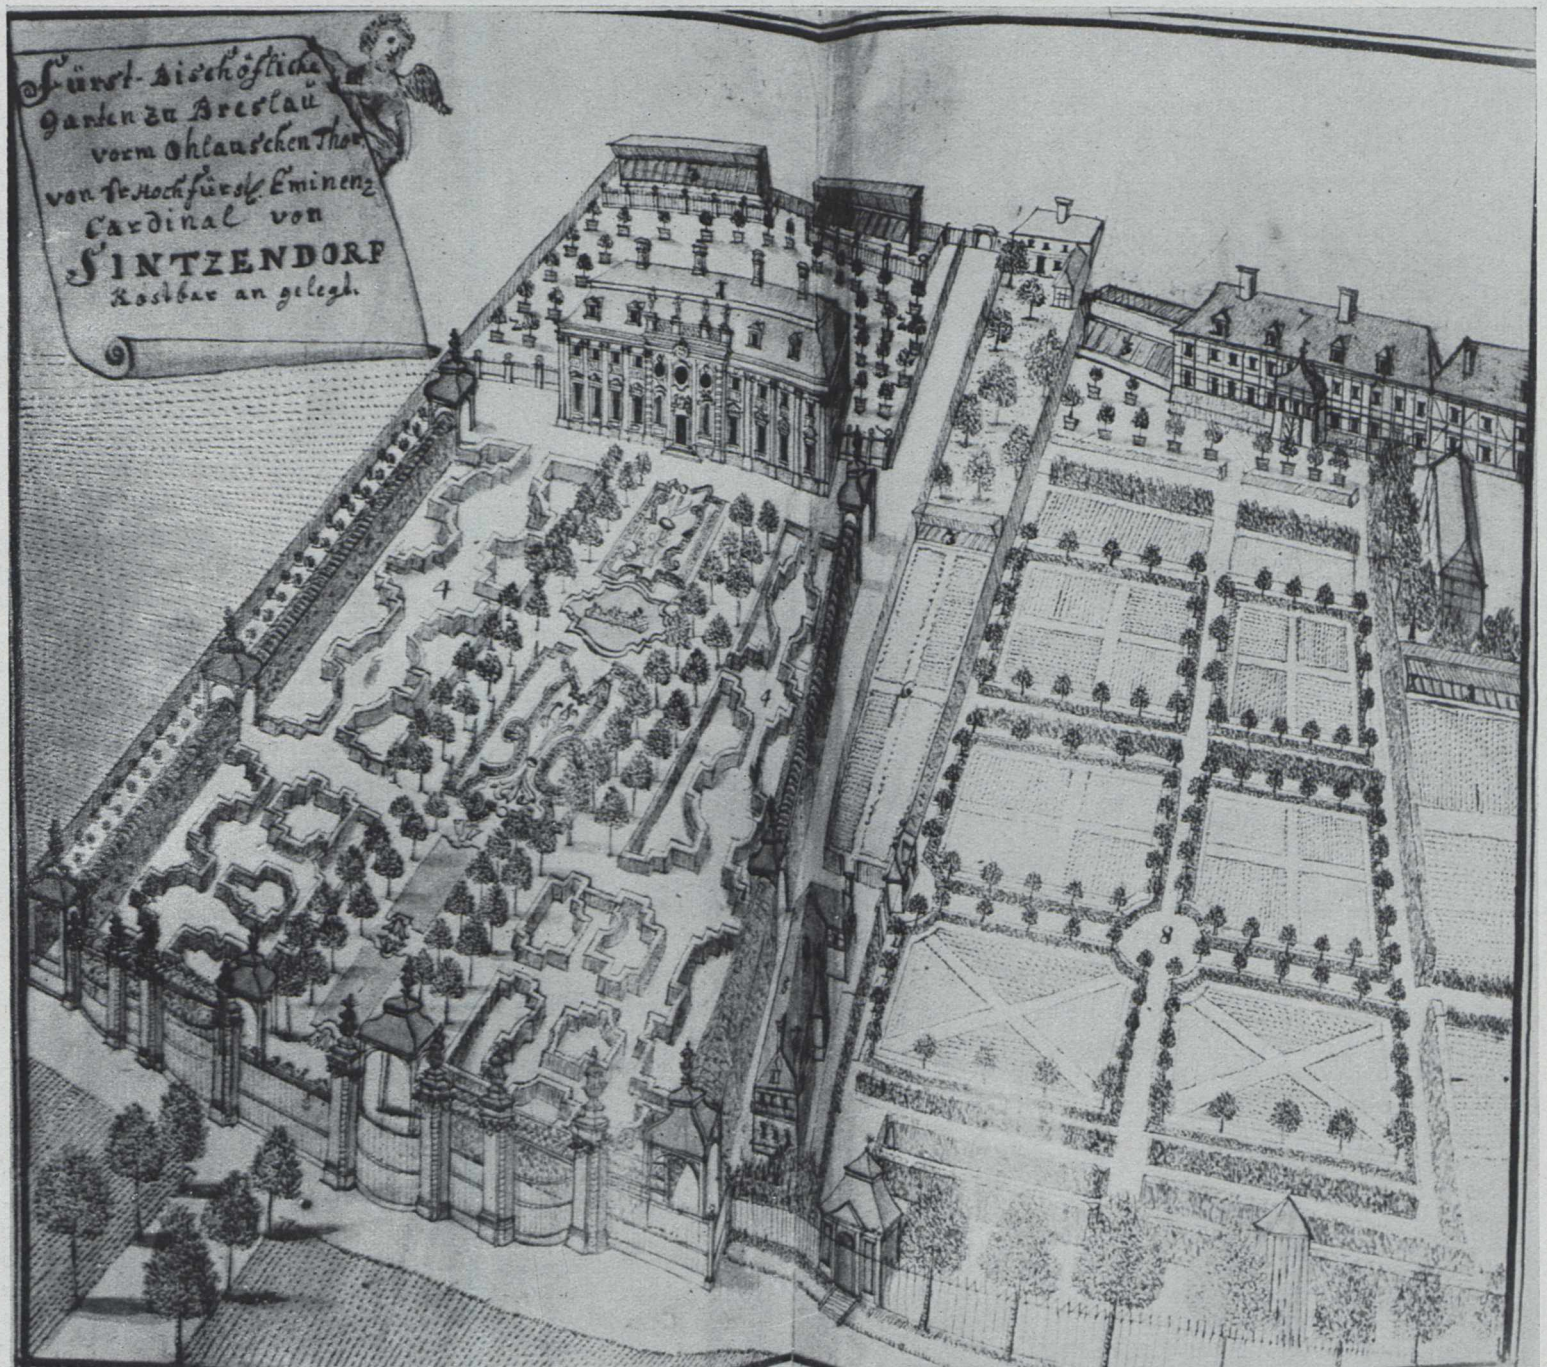 Fürst-Bischöfliche
garten zu Breslaū
vorm Ohlauschen Thor
von Sr Hochfürstl. Eminenz
Cardinal von
SINTZENDORF
Kostbar an gelegt.
1
4
4
8